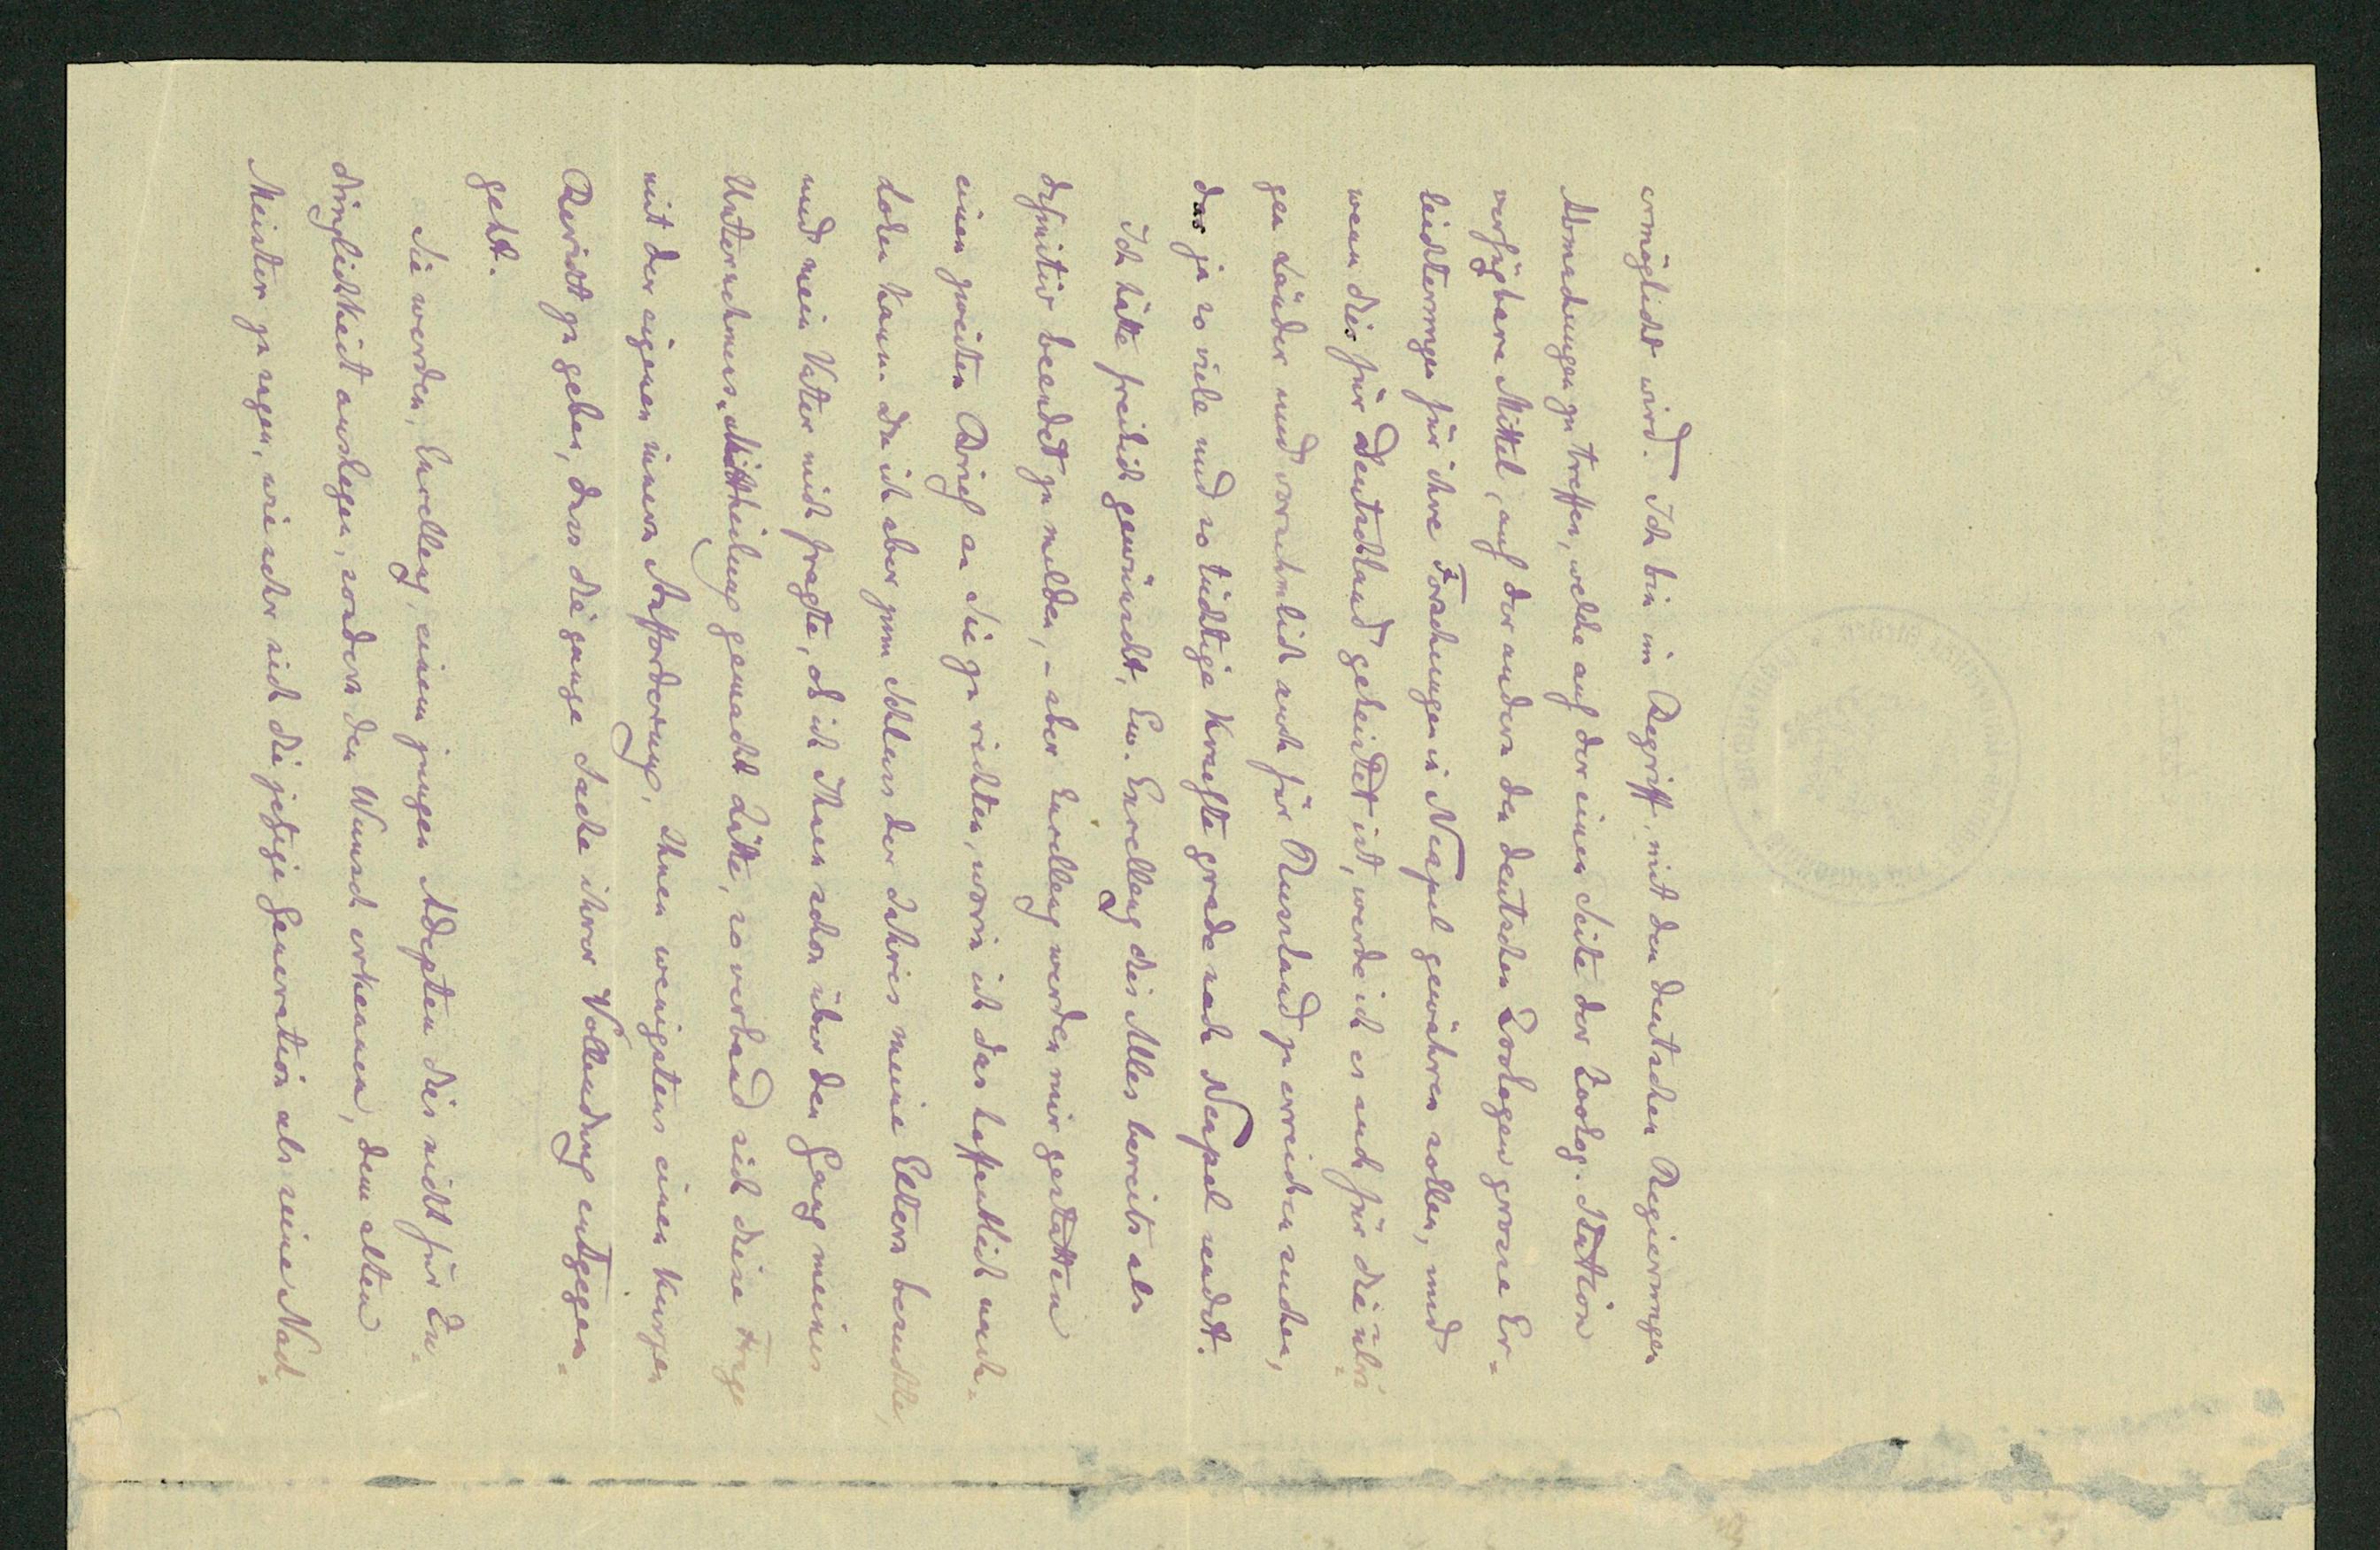 ermöglicht wird. Ich bin im Begriff, mit den deutschen Regierungen
Abmachungen zu treffen, welche auf der einen Seite der Zoolog. Station
verfügbare Mittel, auf der andern den deutschen Zoologen grosse Er-
leichterungen für ihre Forschungen in Neapel gewähren sollen, und
wenn dies für Deutschland geleistet ist, werde ich es auch für die übri-
gen Länder und vornehmlich auch für Russland zu erreichen suchen,
das ja so viele und so tüchtige Kraefte grade nach Neapel sendet.
Ich hätte freilich gewünscht, Ew. Excellenz dies Alles bereits als
definitiv beendet zu melden, – aber Excellenz werden mir gestatten
einen zweiten Brief an Sie zu richten, worin ich das hoffentlich nach-
holen kann. Da ich aber zum Schluss der Jahres meine Eltern besuchte,
und mein Vater mich fragte, ob ich Ihnen schon über den Gang meines
Unternehmens Mittheilung gemacht hätte, so verband sich diese Frage
mit der eigenen innern Aufforderung, Ihnen wenigstens einen kurzen
Bericht zu geben, dass die ganze Sache ihrer Vollendung entgegen-
geht.
Sie werden, Excellenz, einem jungen Adepten dies nicht für Zu-
dringlichkeit auslegen, sondern den Wunsch erkennen, dem alten
Meister zu sagen, wie sehr sich die jetzige Generation als seine Nach-